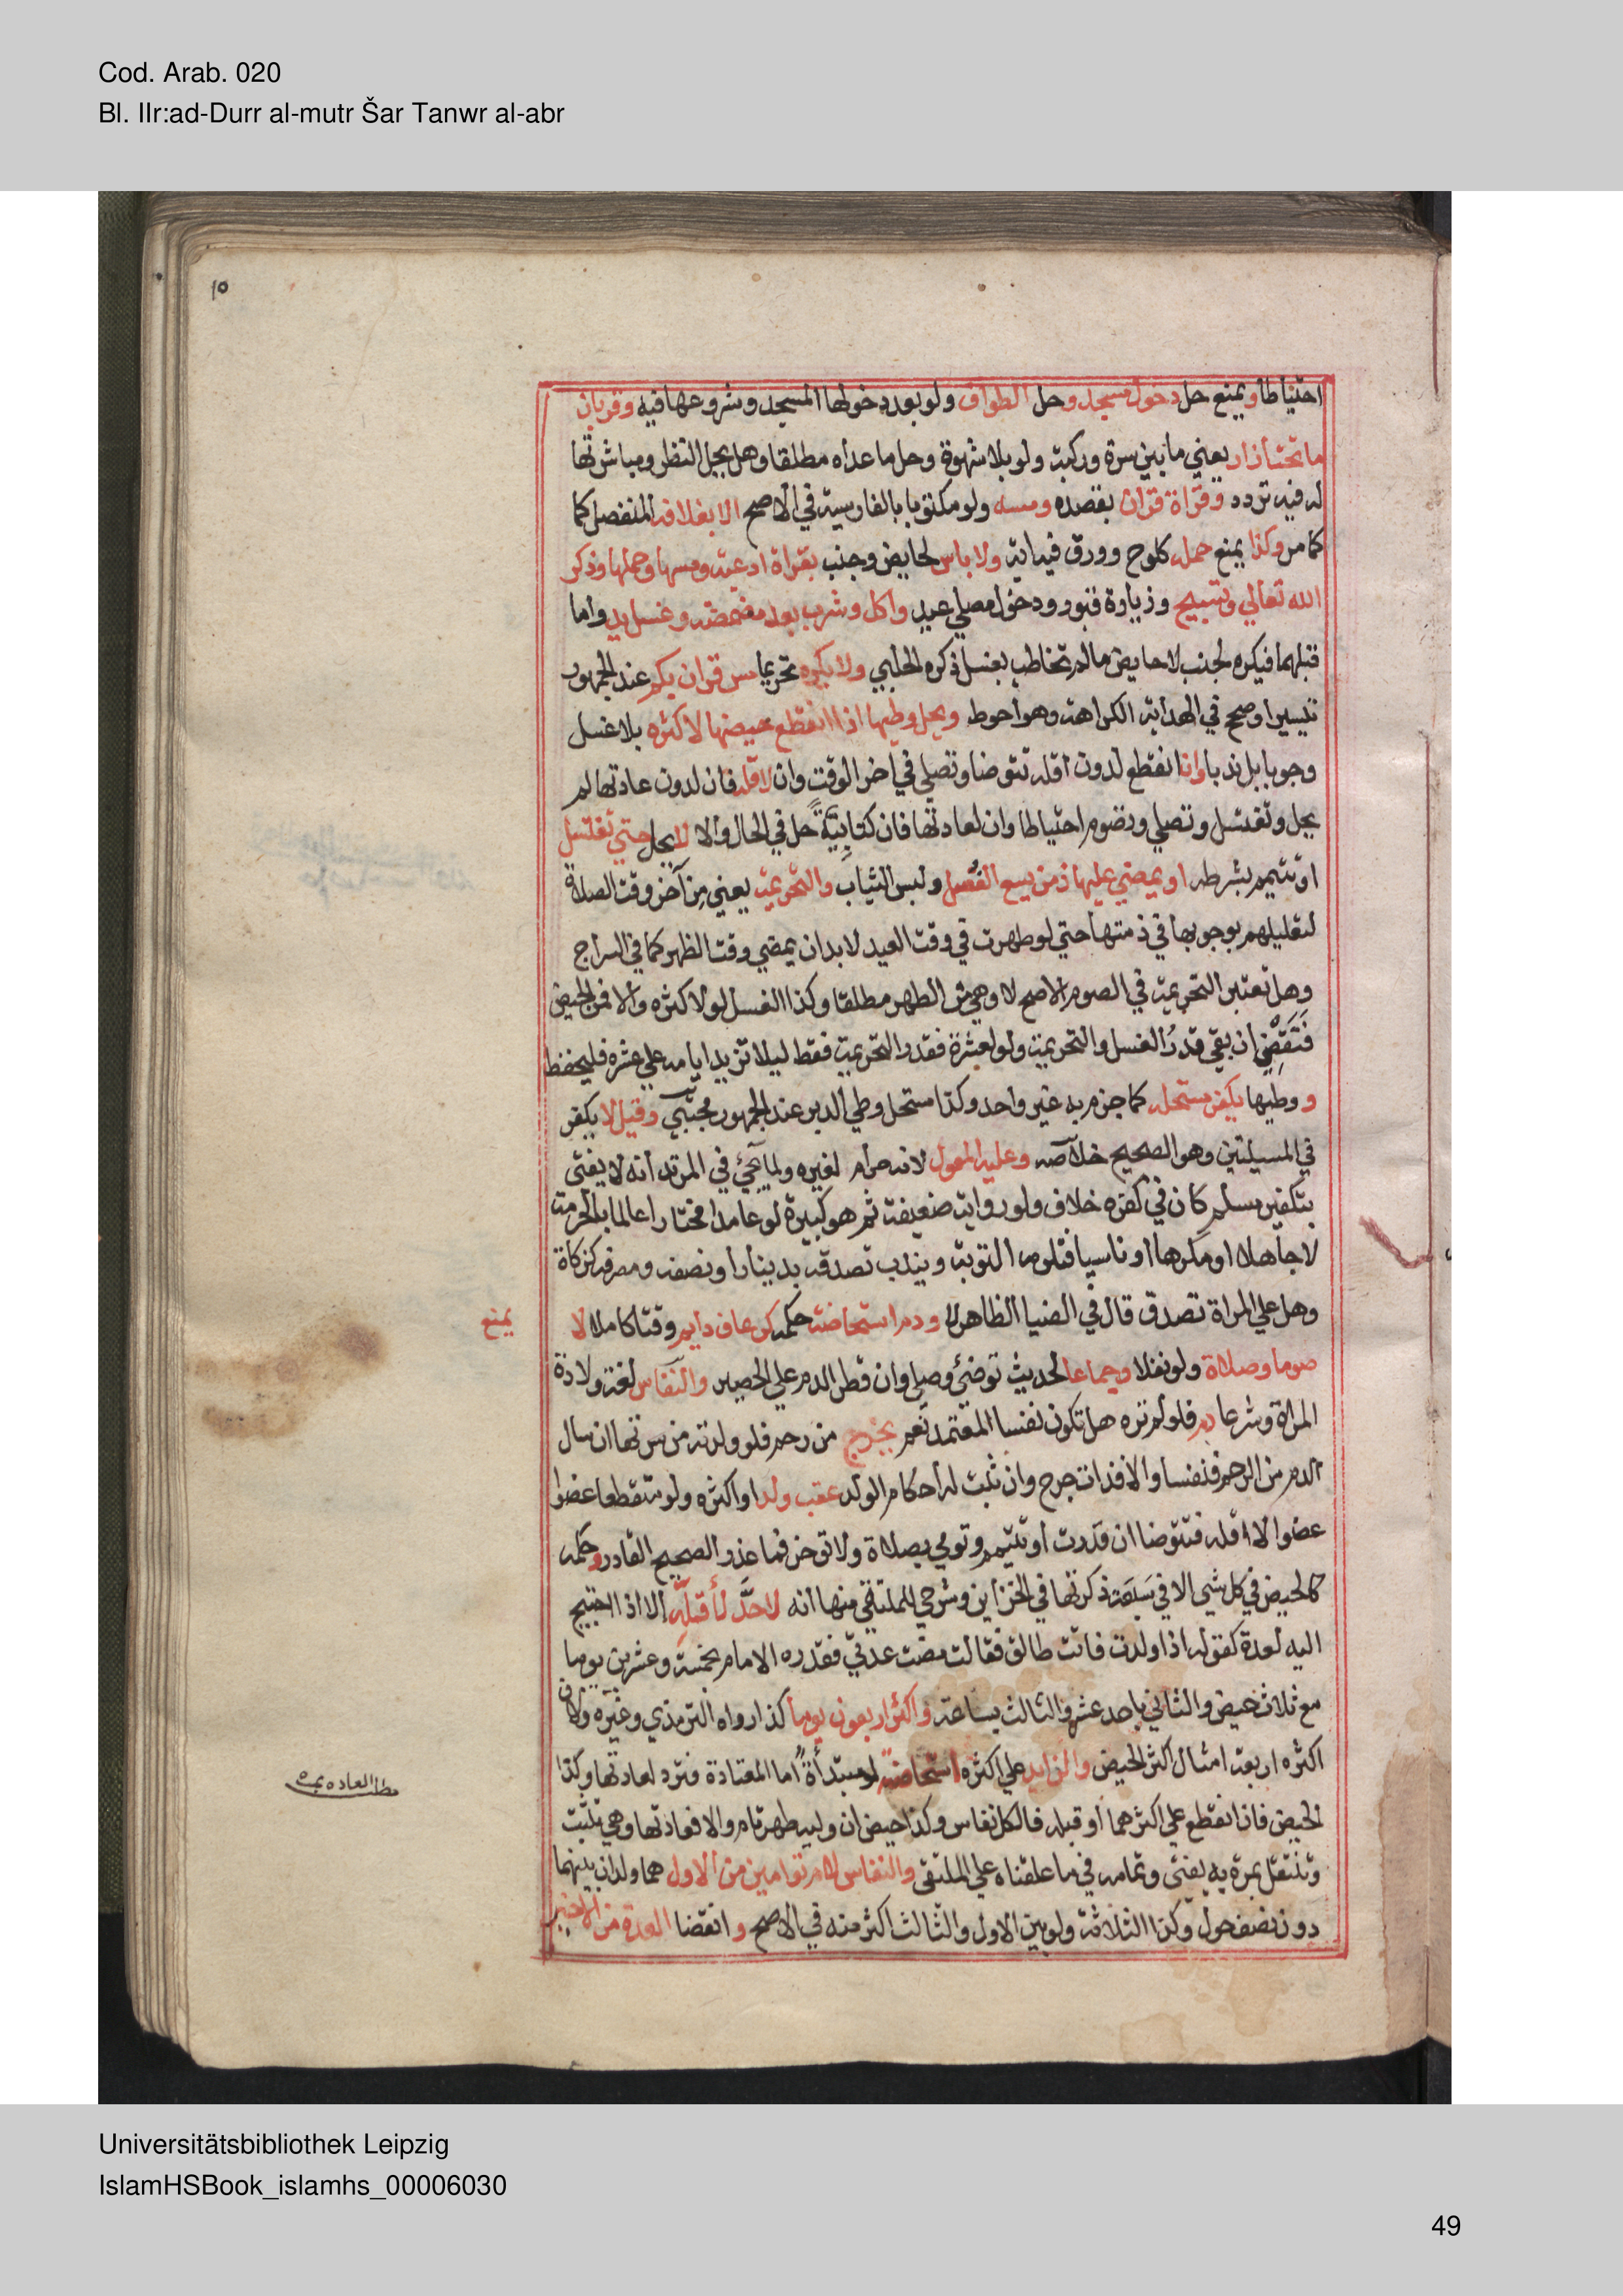 Cod. Arab. 020
Bl. IIr:ad-Durr al-mutr Šar Tanwr al-abr
١٥
احتياطا ويمنع حل دخول مسجد وحل الطواف ولو بعد دخولها المسجد وشروعها فيه وقربان
ما تحت ازار يعني ما بين سرة وركبة ولو بلا شهوة وحل ما عداه مطلقا وهل يحل النظر ومباشرتها
له فيه تردد وقراة قران بقصده ومسه ولو مكتوبا بالفارسية في الاصح الا بغلافه المنفصل كما
كما مر وكذا يمنع حمله كلوح وورق فيه اية ولا باس لحايض وجنب بقراة ادعية ومسها وحملها وذكر
الله تعالي وتسبيح وزيارة قبور ودخول مصلي عيد واكل وشرب بعد مضمضة وغسل يد واما
قبلهما فيكره لجنب لا حايض ما لم تخاطب بغسل ذكره الحلبي ولا يكره تحريما مس قران بكم عند الجمهور
تيسيرا وصحح في الهداية الكراهة وهو احوط ويحل وطيها اذا انقطع حيضها لاكثره بلا غسل
وجوبا بل ندبا وان انقطع لدون اقله تتوضا وتصلي في اخر الوقت وان لاقله فان لدون عادتها لم
يحل وتغتسل وتصلي وتصوم احتياطا وان لعادتها فان كتابية حل في الحال والا لا يحل حتي تغتسل
او تتيمم بشرطه او يمضي عليها زمن يسع الغسل ولبس الثياب والتحريمة يعني من آخر وقت الصلاة
لتعليلهم بوجوبها في ذمتها حتي لو طهرت في وقت العيد لا بد ان يمضي وقت الظهر كما في السراج
وهل تعتبر التحريمة في الصوم الاصح لا وهي من الطهر مطلقا وكذا الغسل لو لاكثره والا فمن الحيض
فتقضي ان بقي قدر الغسل والتحريمة ولو لعشرة فقدر التحريمة فقط ليلا تزيد ايامه علي عشره فليحفظ
ووطيها يكفر مستحله كما جزم به غير واحد وكذا مستحل وطي الدبر عند الجمهور مجتبي وقيل لا يكفر
في المسيلتين وهو الصحيح خلاصه وعليه المعول لانه حرام لغيره ولما يجئ في المرتد انه لا يفتي
بتكفير مسلم كان في كفره خلاف ولو رواية ضعيفة ثم هو كبيرة لو عامدا مختارا عالما بالحرمة
لا جاهلا او مكرها او ناسيا فتلزمه التوبة ويندب تصدقه بدينار او نصفه ومصرفه كزكاة
وهل علي المراة تصدق قال في الضيا الظاهر لا ودم استحاضة حكمه كرعاف دايم وقتا كاملا لا
يمنع
صوما وصلاة ولو نفلا وجماعا لحديث توضئي وصلي وان قطر الدم علي الحصير والنفاس لغة ولادة
المراة وشرعا دم فلو لم تره هل تكون نفسا المعتمد نعم يخرج من رحم فلو ولدته من سرتها ان سال
الدم من الرحم فنفسا والا فذات جرح وان ثبت له احكام الولد عقب ولد او اكثره ولو متقطعا عضوا
عضوا لا اقله فتتوضا ان قدرت او تتيمم وتومي بصلاة ولا توخر فما عذر الصحيح القادر وحكمه
كالحيض في كل شي الا في سبعة ذكرتها في الخزاين وشرحي للملتقي منها انه لا حد لأقله الا اذا احتيج
اليه لعدة كقوله اذا ولدت فانت طالق فقالت مضت عدتي فقدره الامام بخمسة وعشرين يوما
مع ثلاث حيض والثاني باحد عشر والثالث بساعة واكثره اربعون يوما كذا رواه الترمذي وغيره ولان
اكثره اربعة امثال اكثر الحيض والزايد علي اكثره استحاضة لو مبتدأة اما المعتادة فترد لعادتها وكذا
الحيض فان انقطع علي اكثرهما او قبله فالكل نفاس وكذا حيض ان وليه طهر تام والا فعادتها وهي تثبت
وتنتقل بمرة به يفتي وتمامه في ما علقناه علي الملتقي والنفاس لام توامين من الاول هما ولدان بينهما
دون نصف حول وكذا الثلاثة ولو بين الاول والثالث اكثر منه في الاصح وانقضا العدة من الاخير
Universitätsbibliothek Leipzig
IslamHSBook_islamhs_00006030
49